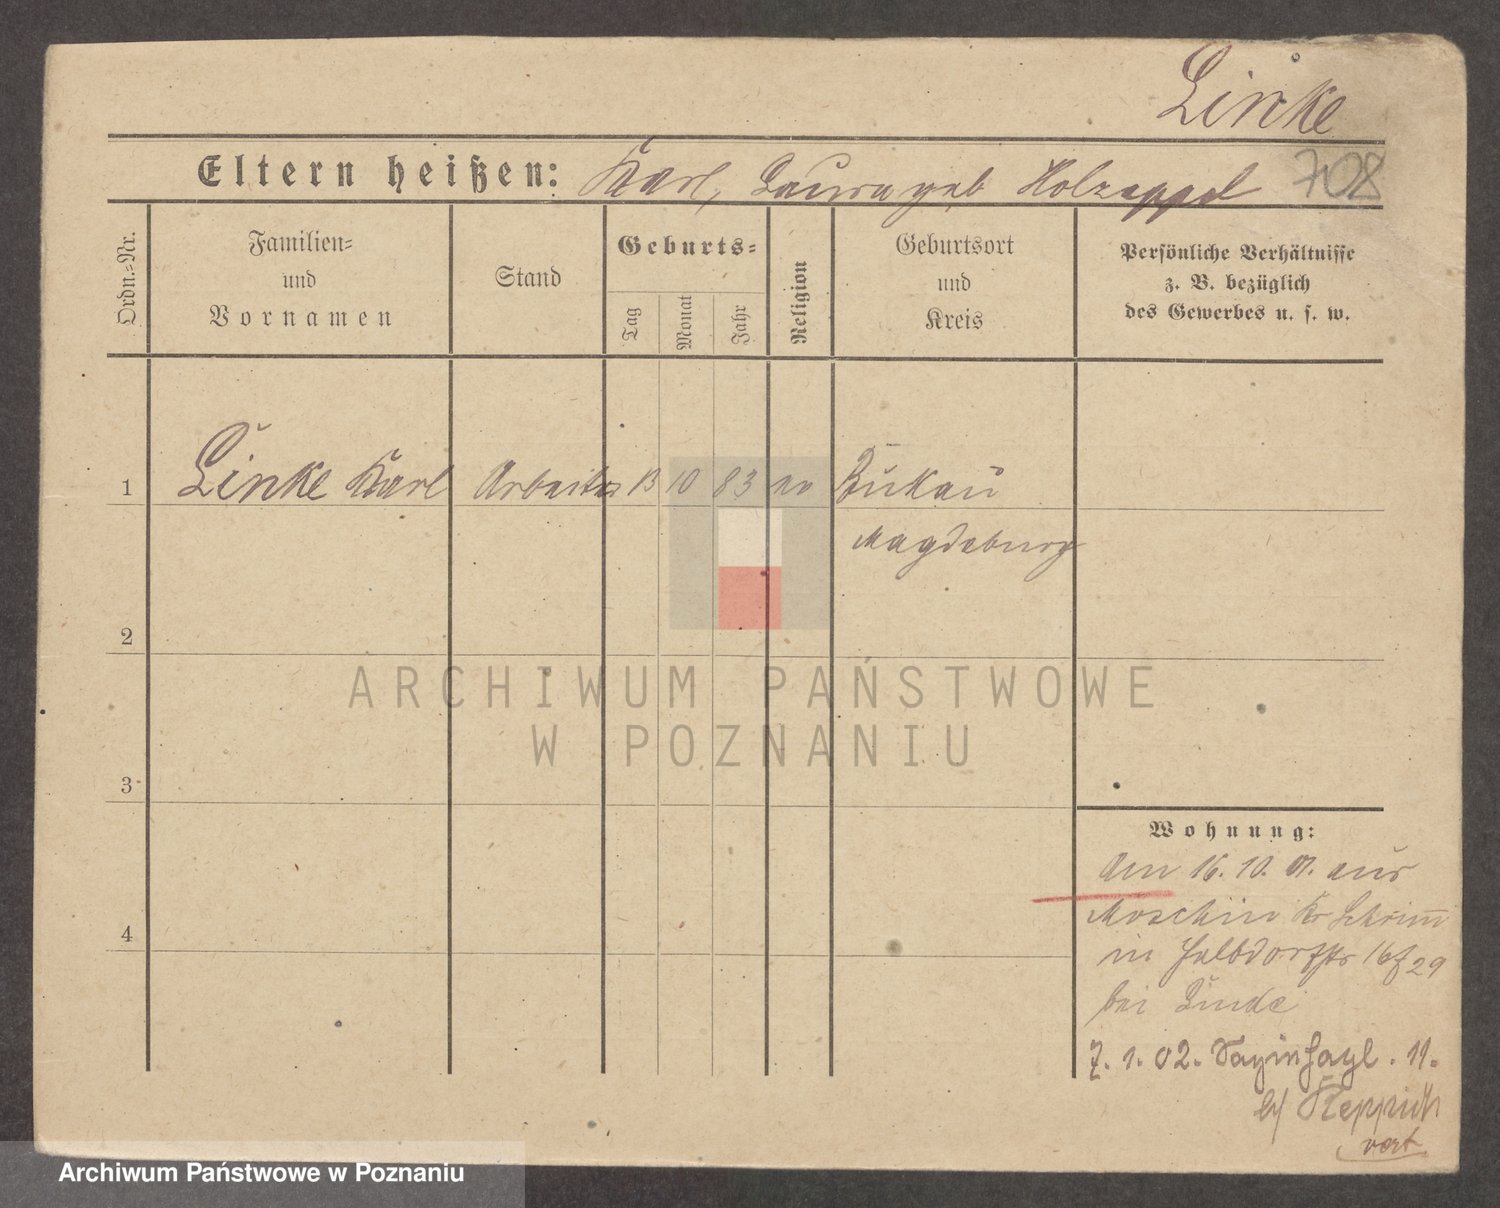 Linke
Eltern heißen: Karl, Laura geb Holzappel
708
Ordn.=Nr.
Familien=
und
Vornamen
Stand
Geburts=
Tag
Monat
Jahr
Religion
Geburtsort
und
Kreis
Persönliche Verhältnisse
z. B. bezüglich
des Gewerbes u. s. w.
1 Linke Karl Arbeiter 13 10 83 ev Bukau
Magdeburg
2
3
4
ARCHIWUM PAŃSTWOWE
W POZNANIU
Wohnung:
Am 16. 10. 01. aus
Moschin Kr Schrimm
in Halbdorfstr 16 f 29
bei Linde
7. 1. 02. 11.
b/ Teppich
vert
Archiwum Państwowe w Poznaniu